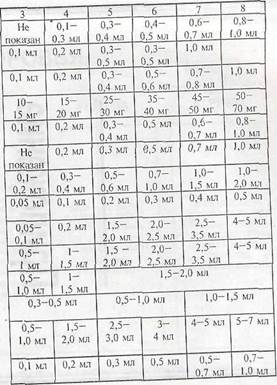 3 4 5 6 7 8
Не показан 0,1– 0,3 мл 0,3– 0,4 мл 0,4– 0,5 мл 0,6– 0,7 мл 0,8– 1,0 мл
0,1 мл 0,2 мл 0,3– 0,5 мл 0,3– 0,5 мл 1,0 мл
0,1 мл 0,2 мл 0,3– 0,4 мл 0,5– 0,6 мл 0,7– 0,8 мл 1,0 мл
10– 15 мг 15– 20 мг 25– 30 мг 35– 40 мг 45– 50 мг 50– 70 мг
0,1 мл 0,2 мл 0,3– 0,4 мл 0,5 мл 0,6– 0,7 мл 0,8– 1,0 мл
Не показан 0,2 мл 0,3 мл 0,5 мл 0,7 мл 1,0 мл
0,1– 0,2 мл 0,3– 0,4 мл 0,5– 0,6 мл 0,7– 1,0 мл 1,0– 1,5 мл 1,0– 2,0 мл
0,05 мл 0,1 мл 0,2 мл 0,3 мл 0,4 мл 0,5 мл
0,05– 0,1 мл 0,2 мл 1,5– 2,0 мл 2,0– 2,5 мл 2,5– 3,5 мл 4–5 мл
0,5– 1 мл 1– 1,5 мл 1,5– 2,0 мл 2,0– 2,5 мл 2,5– 3,5 мл 4–5 мл
0,5– 1,0 мл 1– 1,5 мл 1,5–2,0 мл
0,3–0,5 мл 0,5–1,0 мл 1,0–1,5 мл
0,5– 1,0 мл 1,5– 2,0 мл 2,5– 3,0 мл 3– 4 мл 4–5 мл 5–7 мл
0,1 мл 0,2 мл 0,3 мл 0,5 мл 0,5– 0,7 мл 0,7– 1,0 мл